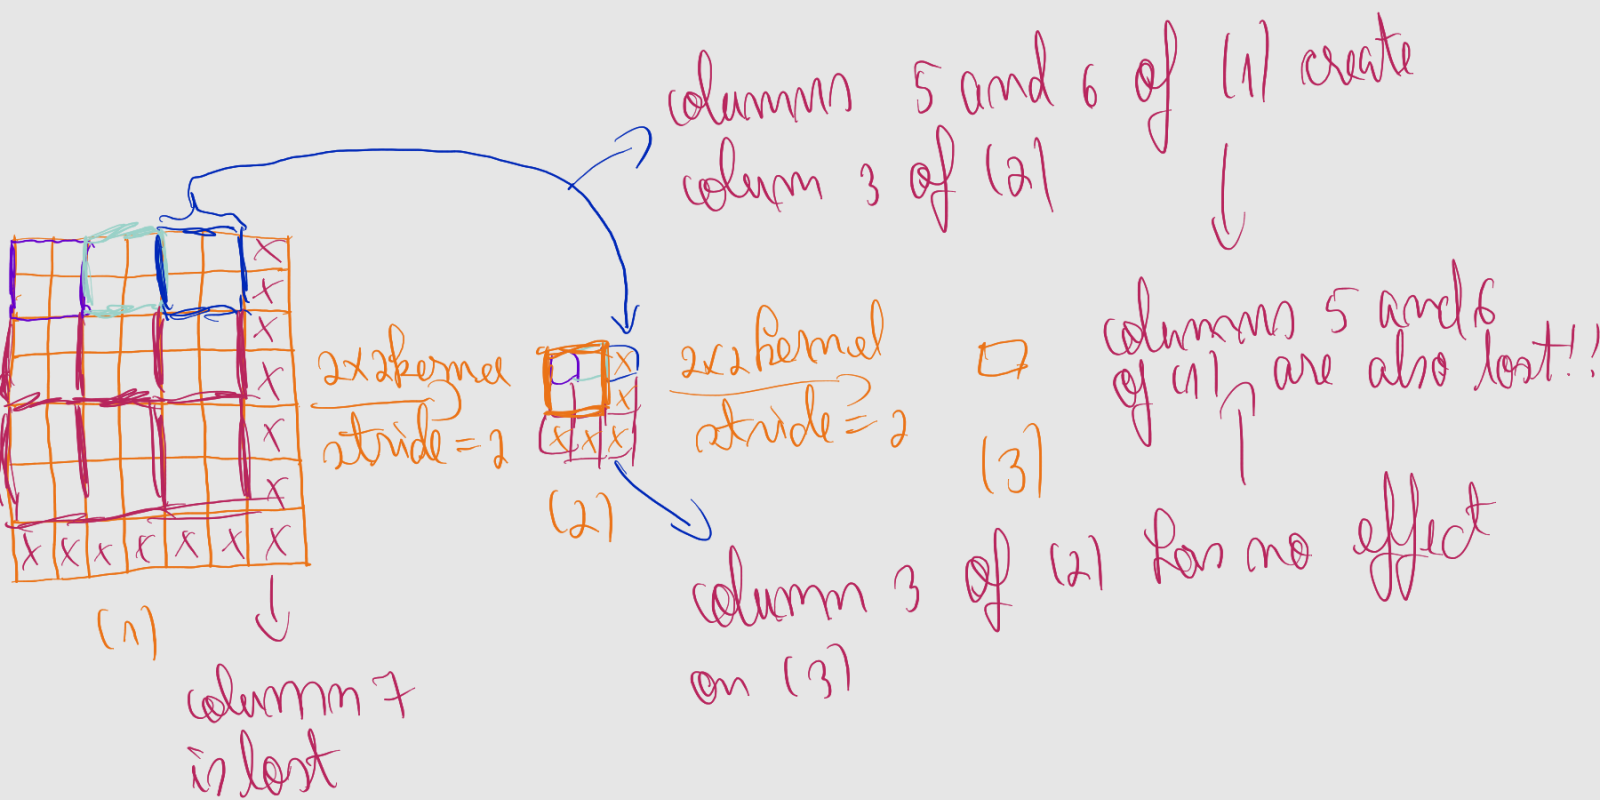 columns 5 and 6 of (1) create
column 3 of (2)
columns 5 and 6
of (1) are also lost!!
2x2 kernel
stride = 2
2x2 kernel
stride = 2
X
X
X
X
X
X
X X X X X X X
X
X
X X X
(1)
(2)
(3)
column 3 of (2) has no effect
on (3)
column 7
is lost